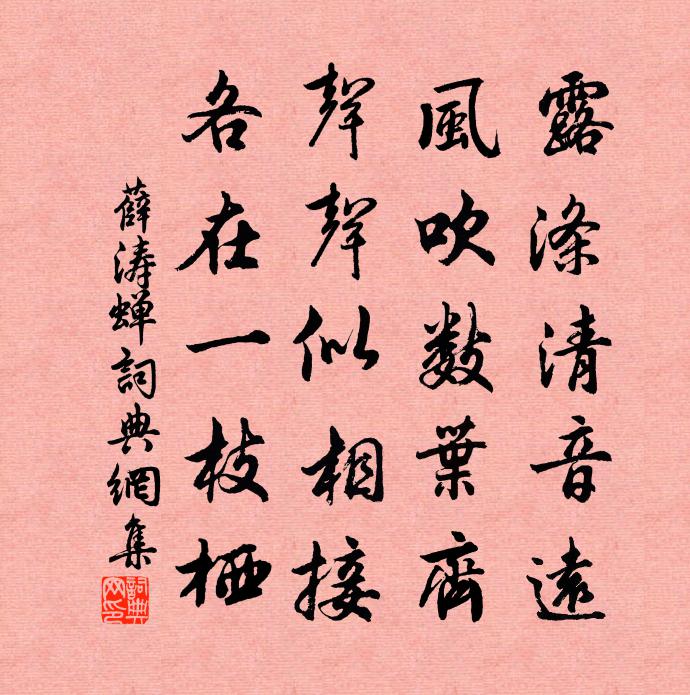 露滌清音遠
風吹數葉齊
聲聲似相接
各在一枝栖
薛濤蟬詞典網集
詞典网印